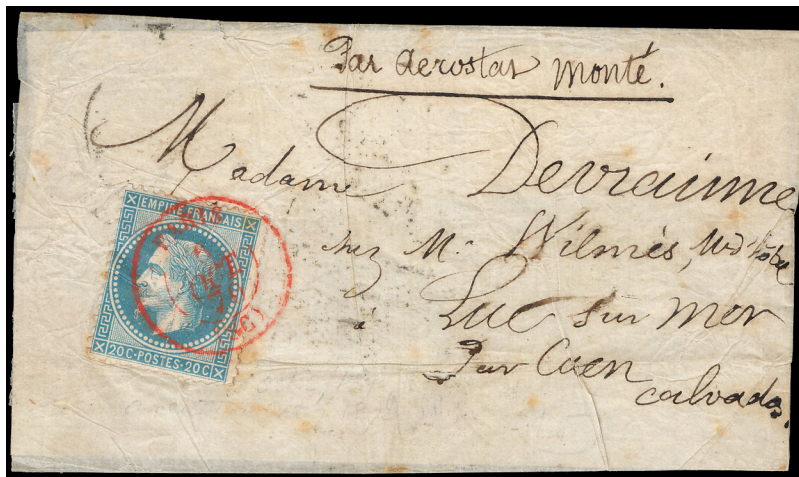 Par aerostat monté.
Madame Devrainne
chez Mr. Wilmès,
à Luc sur mer
Par Caen
calvados.
EMPIRE FRANÇAIS
20C·POSTES·20C
PARIS
(SC)